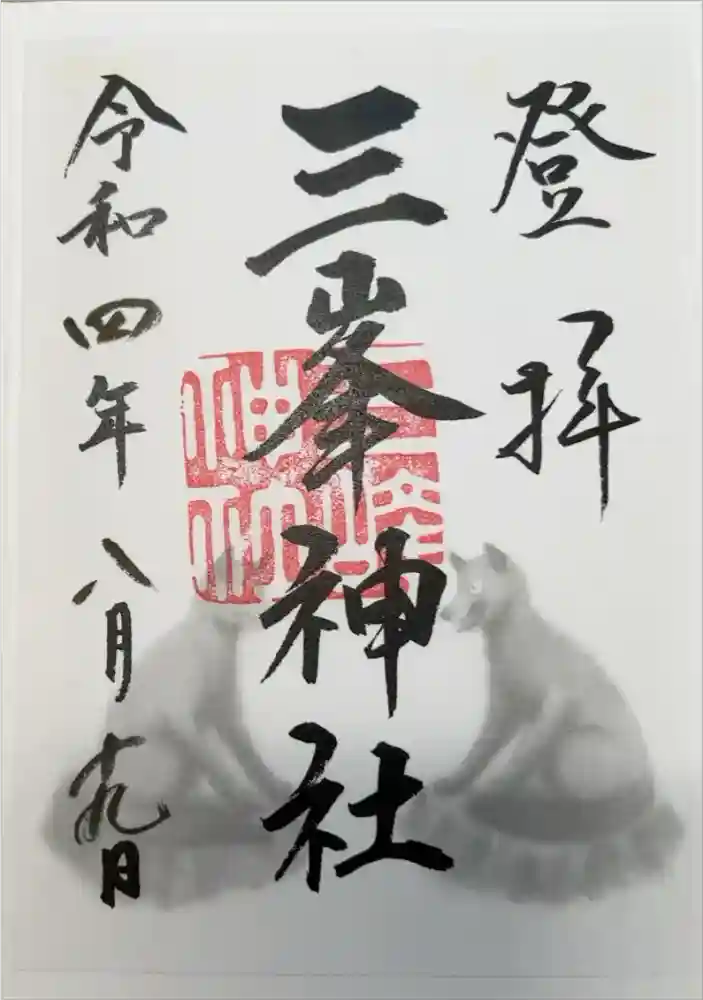 登拝
三峯神社
三峯神社
令和四年八月十九日